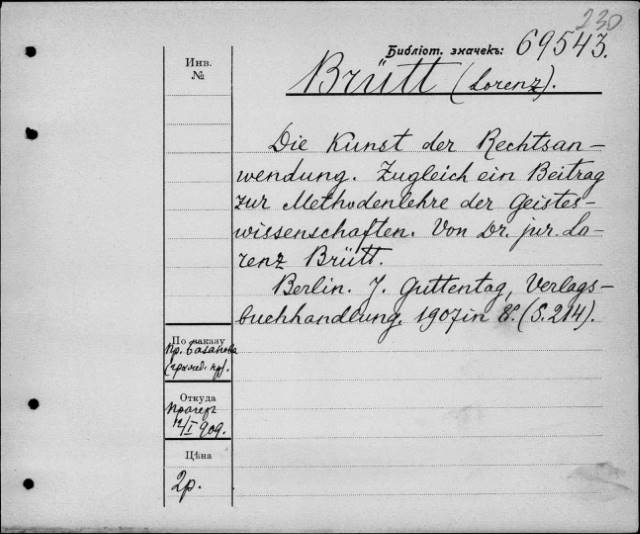 230
Библіот. значекъ: 69543.
Инв.
№
Brütt (Lorenz).
Die Kunst der Rechtsan-
wendung. Zugleich ein Beitrag
zur Methodenlehre der Geistes-
wissenschaften. Von Dr. jur. Lo-
renz Brütt.
Berlin. J. Guttentag, Verlags-
buchhandlung. 1907 in 8°. (S. 214).
По заказу
Пр.
Откуда
Прагеръ
12/I 909.
Цѣна
2р.